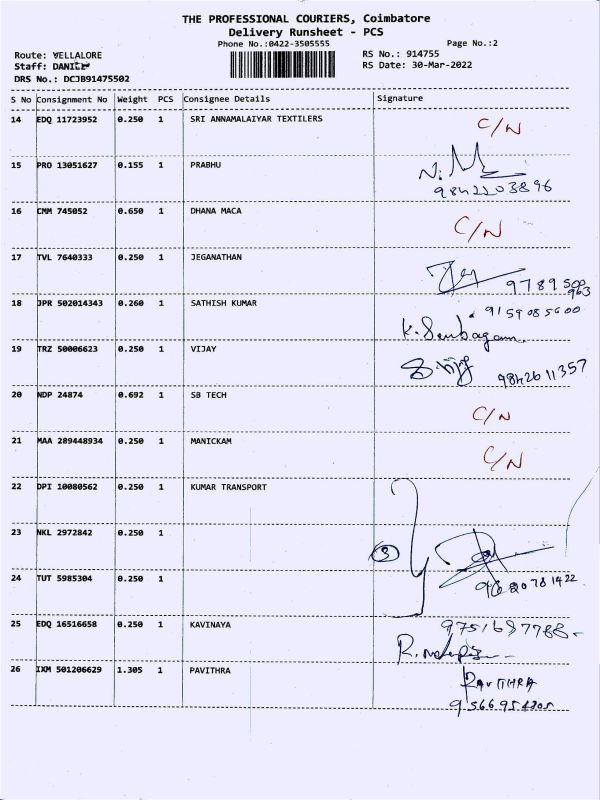 THE PROFESSIONAL COURIERS, Coimbatore
Delivery Runsheet - PCS
Phone No.:0422-3505555
Page No.:2
Route: VELLALORE
RS No.: 914755
Staff: DANIEL
RS Date: 30-Mar-2022
DRS No.: DCJB91475502
S No Consignment No Weight PCS Consignee Details Signature
14 EDQ 11723952 0.250 1 SRI ANNAMALAIYAR TEXTILERS C/N
15 PRO 13051627 0.155 1 PRABHU
9842203896
16 CMM 745052 0.650 1 DHANA MACA C/N
17 TVL 7640333 0.250 1 JEGANATHAN
9789500963
18 JPR 502014343 0.260 1 SATHISH KUMAR 9159085600
K. Senbagam
19 TRZ 50006623 0.250 1 VIJAY
9842611357
20 NDP 24874 0.692 1 SB TECH C/N
21 MAA 289448934 0.250 1 MANICKAM C/N
22 DPI 10080562 0.250 1 KUMAR TRANSPORT
23 NKL 2972842 0.250 1 3
24 TUT 5985304 0.250 1
25 EDQ 16516658 0.250 1 KAVINAYA 9751687788
26 IXM 501206629 1.305 1 PAVITHRA PAVITHRA